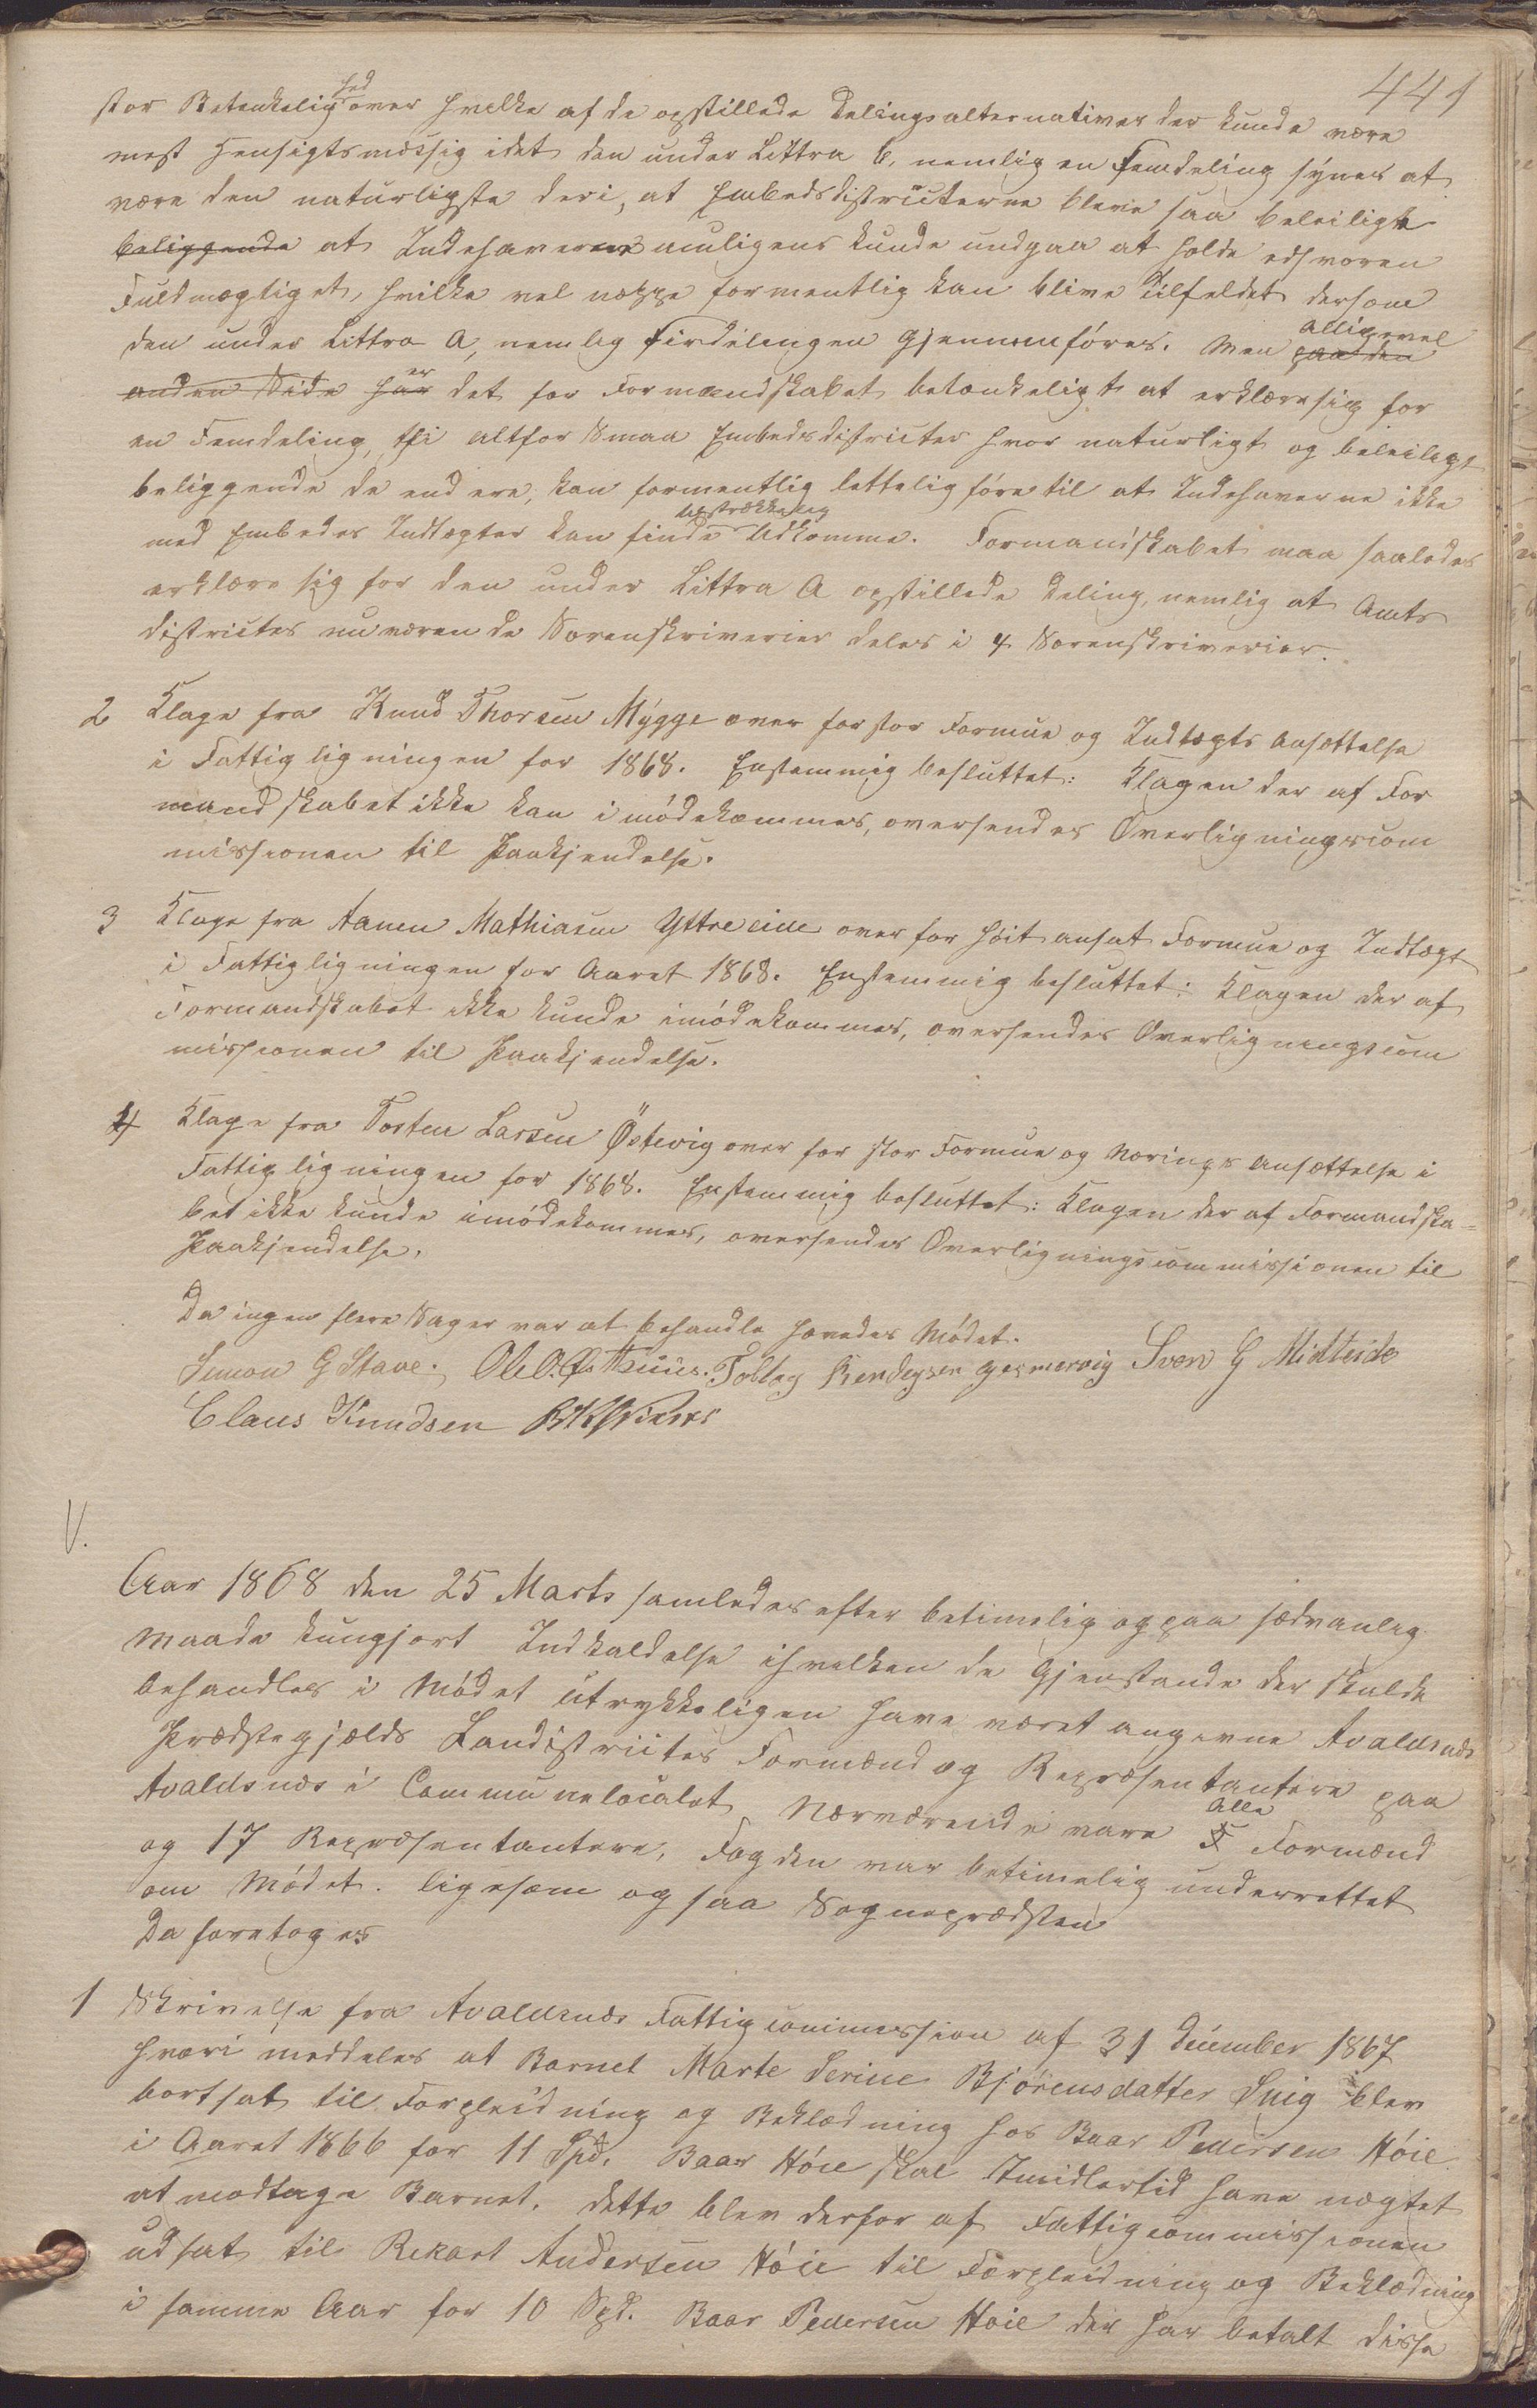 441
stor Betenkelighed over hvilke af de opstillede Delingsalternativer der kunde være
mest Hensigtsmæssig idet den under Littra b, nemlig en Femdeling synes at
være den naturligste deri, at Embedsdistricterne bleve saa beleiligt
beliggende at Indehaverne muligens kunde undgaa at holde edsvoren
Fuldmægtiget, hvilke vel neppe formentlig kan blive Tilfeldet dersom
den under Littra A, nemlig Firdelingen gjennemføres. Men alligevel paa den
anden Side har er det for Formandskabet betænkeligt at erklære sig for
en Femdeling, thi altfor Smaa Embedsdistricter hvor naturligt og beleiligt
beliggende de end ere, kan formentlig lettelig føre til at Indehaverne ikke
med Embedes Indtægter kan finde tilstrækkelig Udkomme. Formandskabet maa saaledes
erklære sig for den under Littra A opstillede Deling, nemlig at Amts
districtes nuværende Sorenskriverier deles i 4 Sorenskriverier.
2 Klage fra Knud Thorsen Mygge over for stor Formue og Indtægts Ansættelse
i Fattigligningen for 1868. Enstemmig besluttet: Klagen der af For
mandskabet ikke kan imødekommes, oversendes Overligningscom
missionen til Paakjendelse.
3 Klage fra Aanen Mathiasen Yttreeide over for høit ansat Formue og Indtægt
i Fattigligningen for Aaret 1868. Enstemmig besluttet: Klagen der af
Formandskabet ikke kunde imødekommes, oversendes Overligningscom
missionen til Paakjendelse.
4 Klage fra Tosten Larsen Østevig over for stor Formue og Nærings Ansættelse i
Fattigligningen for 1868. Enstemmig besluttet: Klagen der af Formandska-
bet ikke kunde imødekommes, oversendes Overligningscommissionen til
Paakjendelse.
Da ingen flere Sager var at behandle hævedes Mødet.
Simon G Stave. Ole O. Tollag Bendegsen Sven G Midteide
Claus Knudsen
V.
Aar 1868 den 25 Marts samledes efter betimelig og paa sædvanlig
Maade kungjort Indkaldelse i hvilken de Gjenstande der skulde
behandles i Mødet utrykkeligen have været angivne Avaldsnæs
Prædstegjælds Landistrictes Formænd og Representantere paa
Avaldsnæs i Communelocalet Nærværende vare Alle F Formænd
og 17 Repræsentantere, Fogden var betimelig underrettet
om Mødet. ligesom ogsaa Sogneprædsten
Da foretoges
1 Skrivelse fra Avaldsnæs Fattigcommission af 31 December 1867
hvori meddeles at Barnet Marte Serine Bjørensdatter Snig blev
bortsat til Forpleidning og Beklædning hos Baar Pedersen Høie
i Aaret 1866 for 11 Spd. Baar Høie skal Imidlertid have nægtet
at modtage Barnet. dette blev derfor af Fattigcommissionen
udsat til Rekart Andersen Høie til Forpleidning og Beklædning
i samme Aar for 10 Spd. Baar Pedersen Høie der har betalt disse